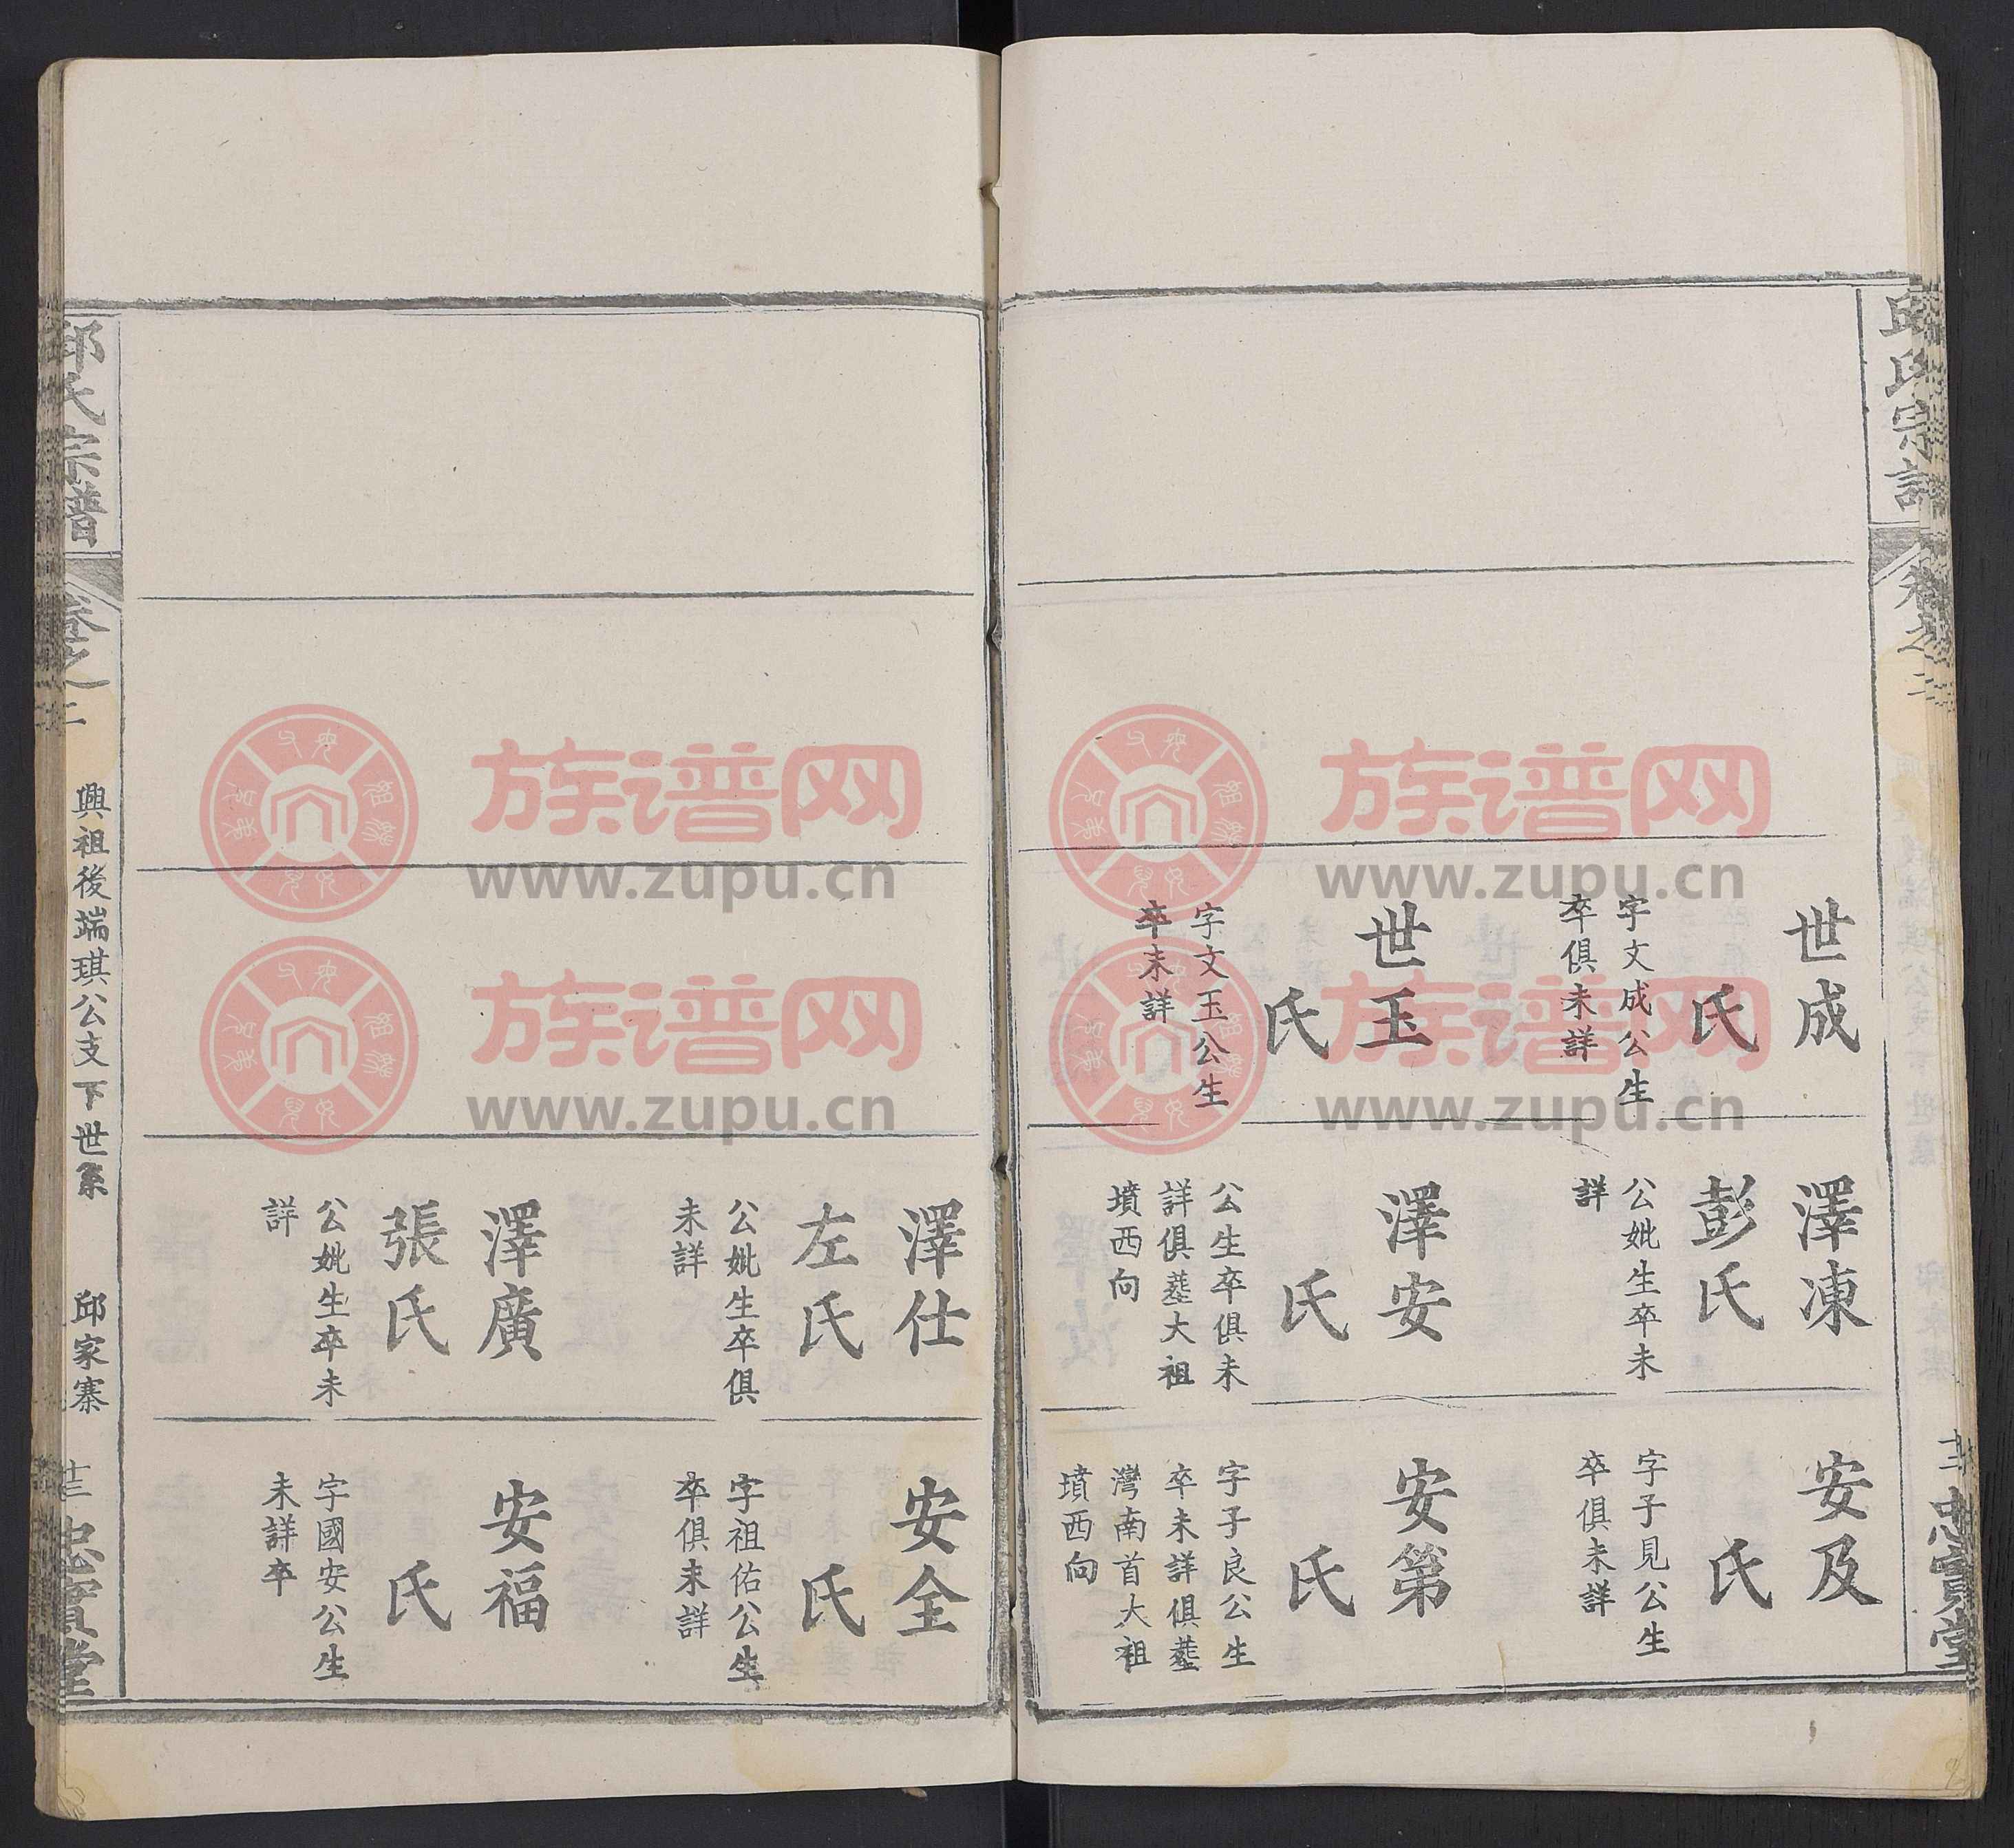 邱氏宗譜
卷之二
世成
氏
字文成公生
卒俱未詳
世玉
氏
字文玉公生
卒未詳
澤凍
彭氏
公妣生卒未
詳
澤安
氏
公生卒俱未
詳俱塟大祖
墳西向
安及
氏
字子見公生
卒俱未詳
安第
氏
字子良公生
卒未詳俱塟
灣南首大祖
墳西向
澤仕
左氏
公妣生卒俱
未詳
澤廣
張氏
公妣生卒未
詳
安全
氏
字祖佑公生
卒俱未詳
安福
氏
字國安公生
未詳卒
邱氏宗譜
卷之二
興祖後端琪公支下世系
邱家寨
十三
忠實堂
族谱网
www.zupu.cn
族谱网
www.zupu.cn
族谱网
www.zupu.cn
族谱网
www.zupu.cn